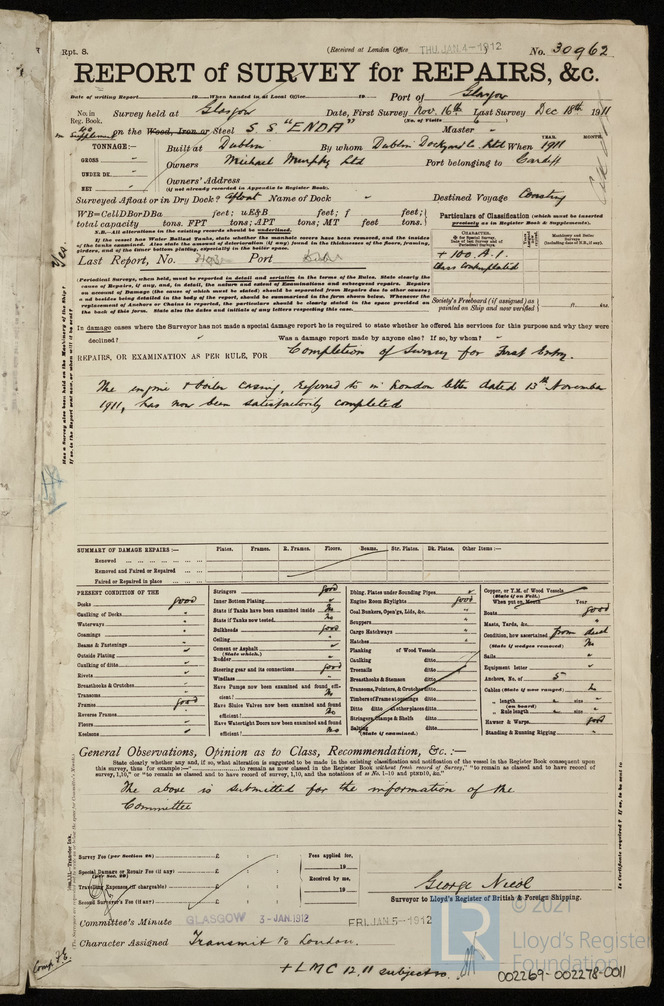 Rpt. 8.
(Received at London Office THU. JAN. 4-1912)
No. 30962
REPORT of SURVEY for REPAIRS, &c.
Date of writing Report 19 When handed in at Local Office 19 Port of Glasgow
No. in Reg. Book. Survey held at Glasgow Date, First Survey Nov. 16th Last Survey Dec 18th 1911
(No. of Visits 6)
on the Wood, Iron or Steel S. S "ENDA" Master "
TONNAGE:— Built at Dublin By whom Dublin Dockyard Co. Ltd When 1911
YEAR. MONTH.
GROSS Owners Michael Murphy Ltd Port belonging to Cardiff
UNDER DK. Owners' Address
NET (if not already recorded in Appendix to Register Book).
Surveyed Afloat or in Dry Dock? Afloat Name of Dock " Destined Voyage Coasting
WB=CellDBorDBa feet; uE&B feet; f feet;
total capacity tons. FPT tons; APT tons; MT feet tons.
N.B.—All alterations in the existing records should be underlined.
If the vessel has Water Ballast Tanks, state whether the manhole covers have been removed, and the insides of the tanks examined.
Particulars of Classification (which must be inserted precisely as in Register Book & Supplements).
CHARACTER.
+ 100. A. 1.
Class Contemplated
Last Report, No. Port
(Periodical Surveys, when held, must be reported in detail and seriatim in the terms of the Rules. State clearly the cause of Repairs, if any, and, in detail, the nature and extent of Examinations and subsequent repairs. Repairs on account of Damage (the cause of which must be stated) should be separated from Repairs due to other causes; and besides being detailed in the body of the report, should be summarized in the form shown below. Whenever the replacement of Anchors or Chains is reported, the particulars should be clearly stated in the space provided on the back of this form. State also the dates and initials of any letters respecting this case.
Society's Freeboard (if assigned) as painted on Ship and now verified
In damage cases where the Surveyor has not made a special damage report he is required to state whether he offered his services for this purpose and why they were
declined? " Was a damage report made by anyone else? If so, by whom? "
REPAIRS, OR EXAMINATION AS PER RULE, FOR Completion of Survey for First Entry.
The engine & boiler casing, referred to in London letter dated 13th November
1911, has now been satisfactorily completed
SUMMARY OF DAMAGE REPAIRS:— Plates. Frames. R. Frames. Floors. Beams. Str. Plates. Dk. Plates. Other Items:—
Renewed
Removed and Faired or Repaired
Faired or Repaired in place
PRESENT CONDITION OF THE
Decks good
Caulking of Decks "
Waterways "
Coamings "
Beams & Fastenings "
Outside Plating
Caulking of ditto
Rivets
Breasthooks & Crutches
Transoms
Frames good
Reverse Frames
Floors
Keelsons
Stringers good
Inner Bottom Plating
State if Tanks have been examined inside No
State if Tanks now tested. No
Bulkheads good
Ceiling
Cement or Asphalt
(State which.)
Rudder
Steering gear and its connections good
Windlass
Have Pumps now been examined and found efficient? No
Have Sluice Valves now been examined and found efficient? No
Have Watertight Doors now been examined and found efficient? No
Dblng. Plates under Sounding Pipes
Engine Room Skylights good
Coal Bunkers, Open'gs, Lids, &c.
Scuppers
Cargo Hatchways
Hatches
Planking of Wood Vessels
Caulking ditto
Treenails ditto
Breasthooks & Stemson ditto
Transoms, Pointers, & Crutches ditto
Timbers of Frame at openings ditto
Ditto ditto at other places ditto
Stringers, Clamps & Shelfs ditto
Salting ditto
(State if examined.)
Copper, or Y.M. of Wood Vessels
(State if on Felt.)
When put on, Month Year
Boats good
Masts, Yards, &c.
Condition, how ascertained from deck
(State if wedges removed) No
Sails
Equipment letter
Anchors, No. of 5
Cables (State if now ranged) No
" length size
(on board)
" Rule length size
Hawser & Warps good
Standing & Running Rigging
General Observations, Opinion as to Class, Recommendation, &c. :—
State clearly whether any, and if so, what alteration is suggested to be made in the existing classification and notification of the vessel in the Register Book consequent upon
this survey, thus for example:— to remain as now classed in the Register Book without fresh record of Survey," "to remain as classed and to have record of
survey, 1,10," or "to remain as classed and to have record of survey, 1,10, and the notations of ss No. 1-10 and ptND10, &c."
The above is submitted for the information of the
Committee
Survey Fee (per Section 28) £ : :
Special Damage or Repair Fee (if any) (per Sec. 28) £ : :
Travelling Expenses (if chargeable) £ : :
Second Surveyor's Fee (if any) £ : :
Fees applied for,
19
Received by me,
19
George Nicol
Surveyor to Lloyd's Register of British & Foreign Shipping.
Committee's Minute GLASGOW 3-JAN. 1912 FRI. JAN. 5-1912
Character Assigned Transmit to London.
+ LMC 12.11 subject no.
© 2021
LR
Lloyd's Register
Foundation
002269-002278-0011